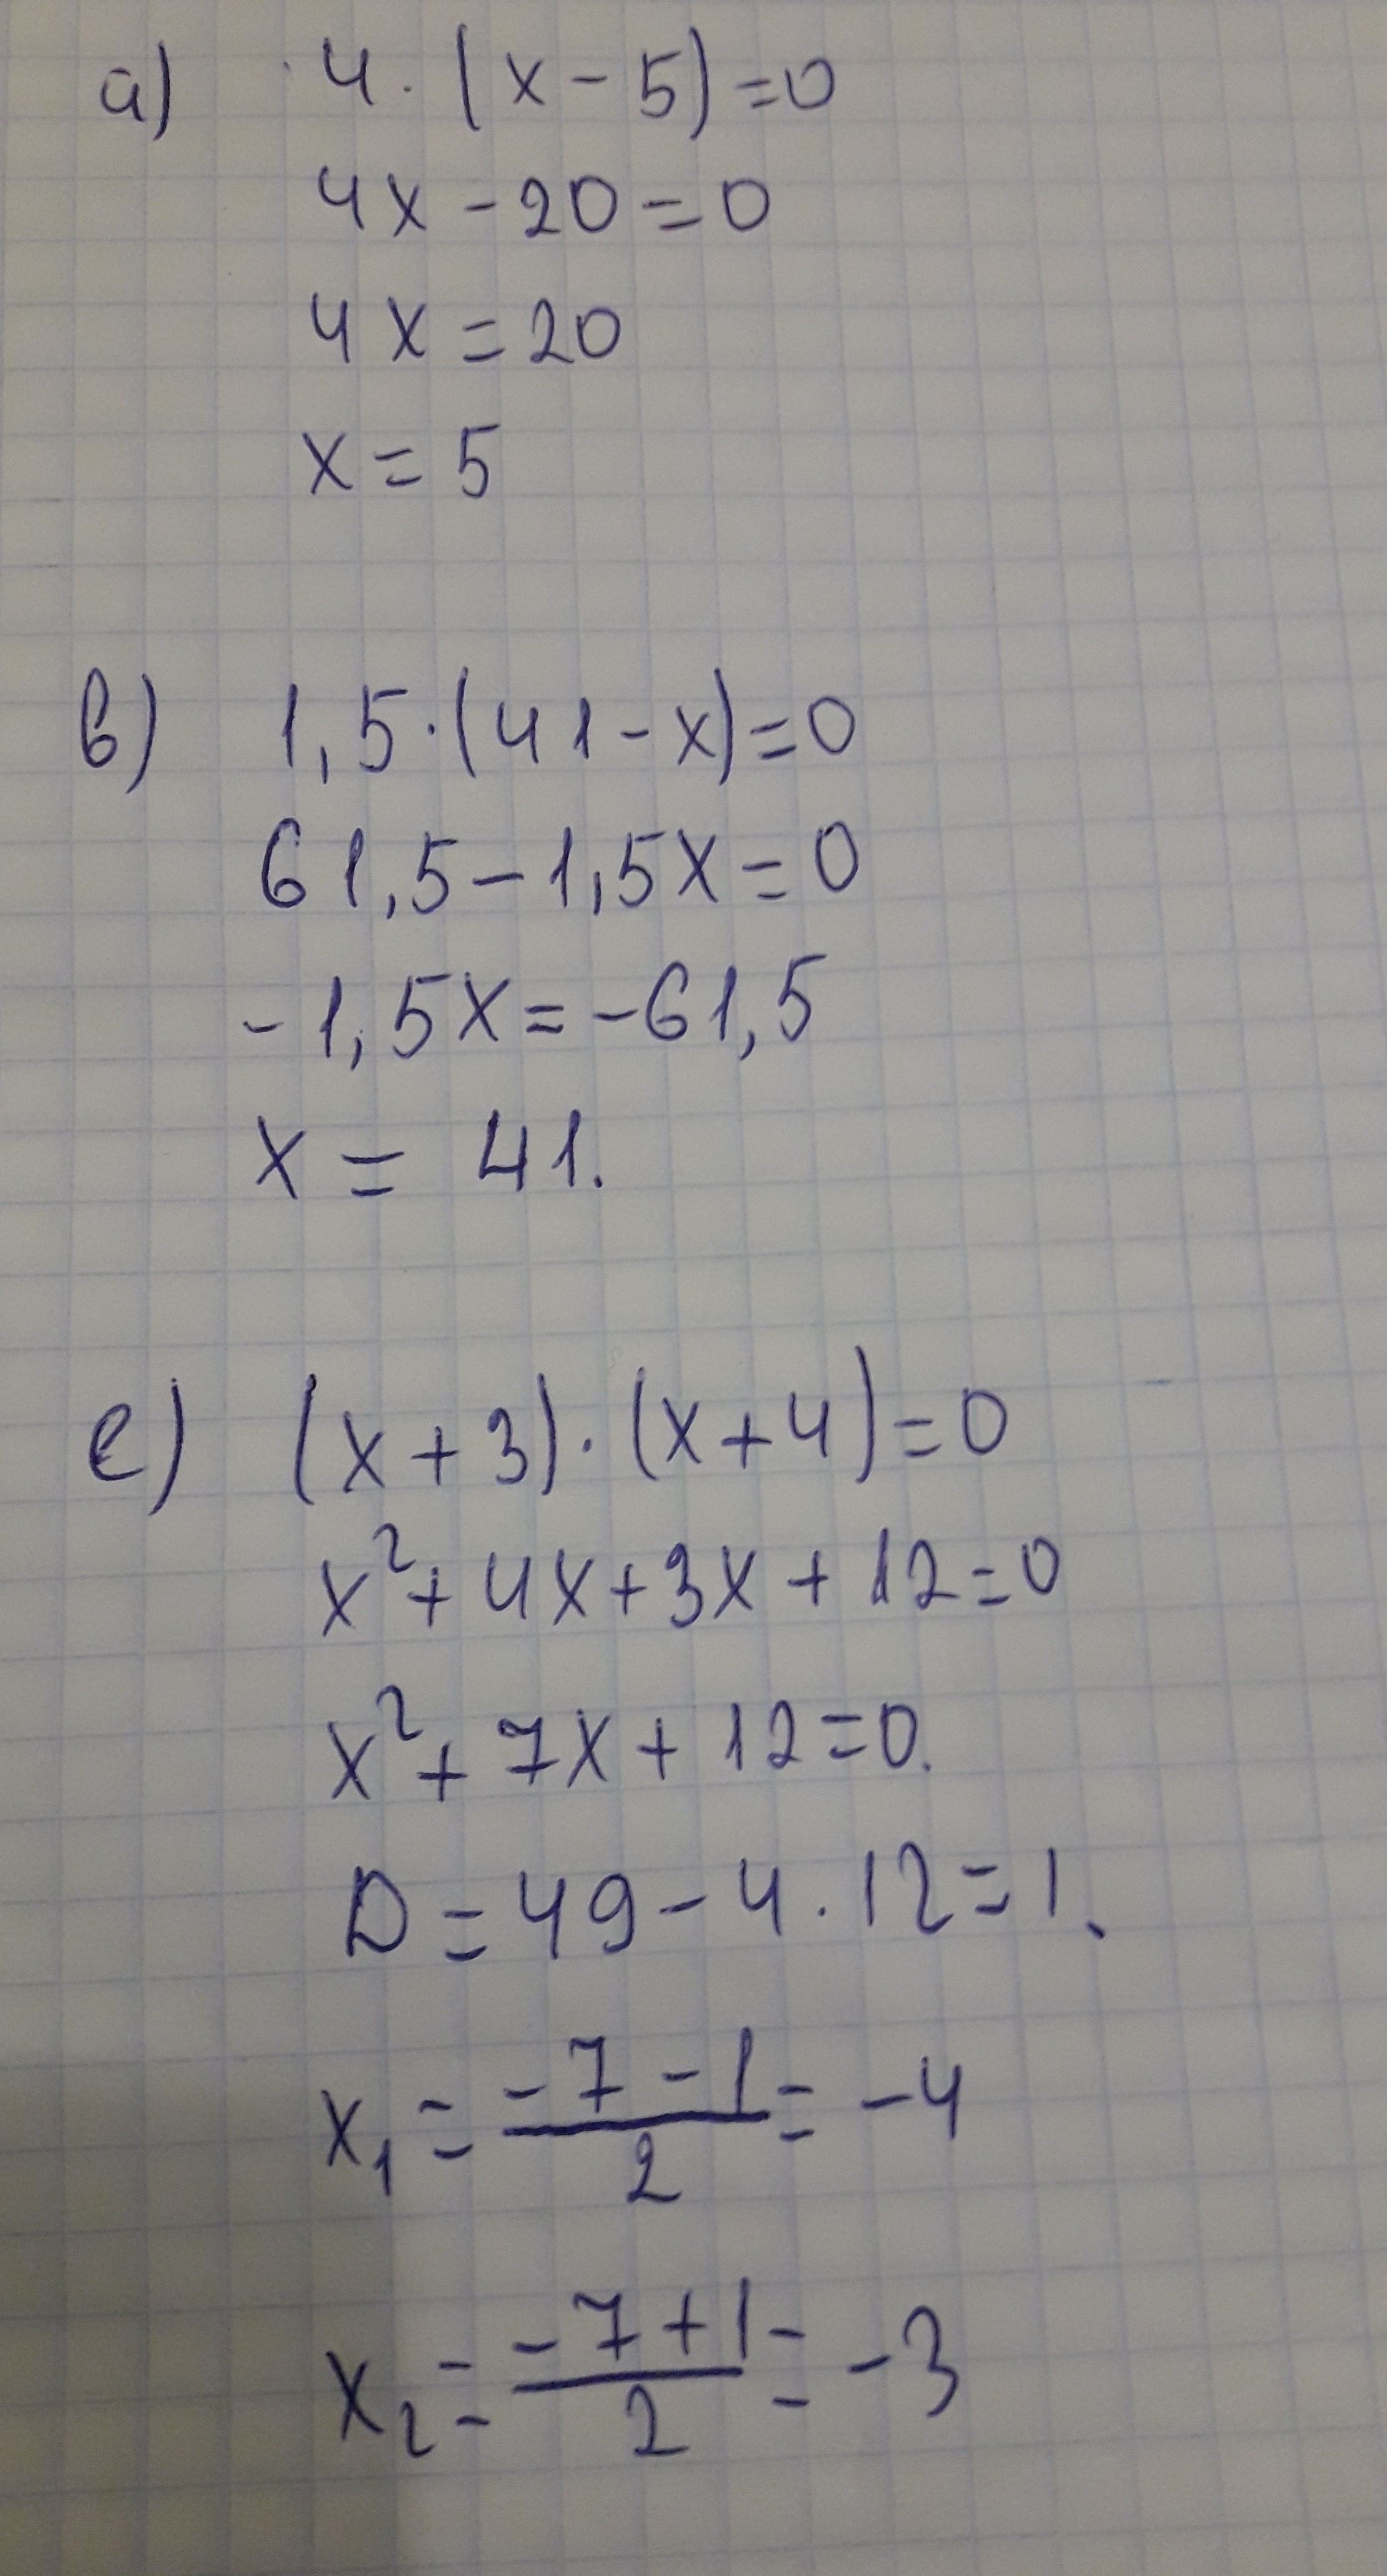 а) 4·(x-5)=0
4x-20=0
4x=20
x=5
в) 1,5·(41-x)=0
61,5-1,5x=0
-1,5x=-61,5
x=41.
е) (x+3)·(x+4)=0
x²+4x+3x+12=0
x²+7x+12=0.
D=49-4·12=1.
x₁=(-7-1)/2=-4
x₂=(-7+1)/2=-3